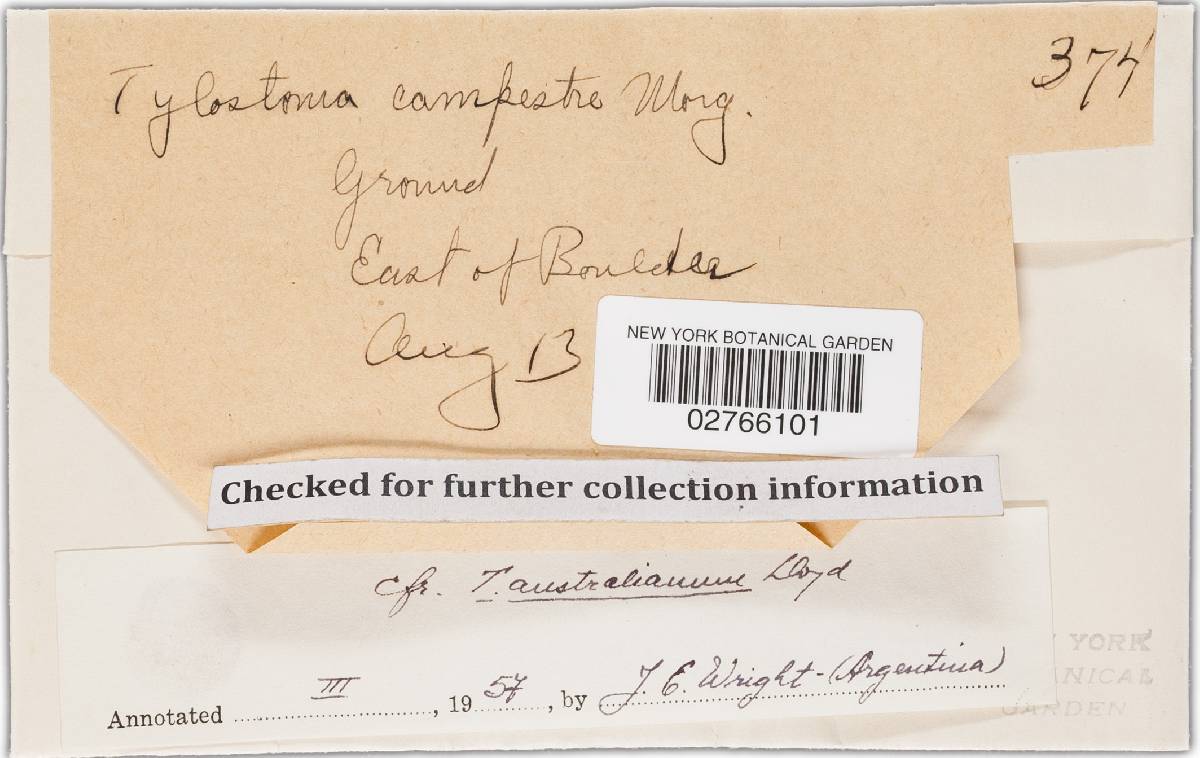 374
Tylostoma campestre Morg.
Ground
East of Boulder
Aug 13
NEW YORK BOTANICAL GARDEN
02766101
Checked for further collection information
cfr. T. australianum Lloyd
Annotated III, 19 57, by J. E. Wright - (Argentina)
YORK
NICAL
GARDEN